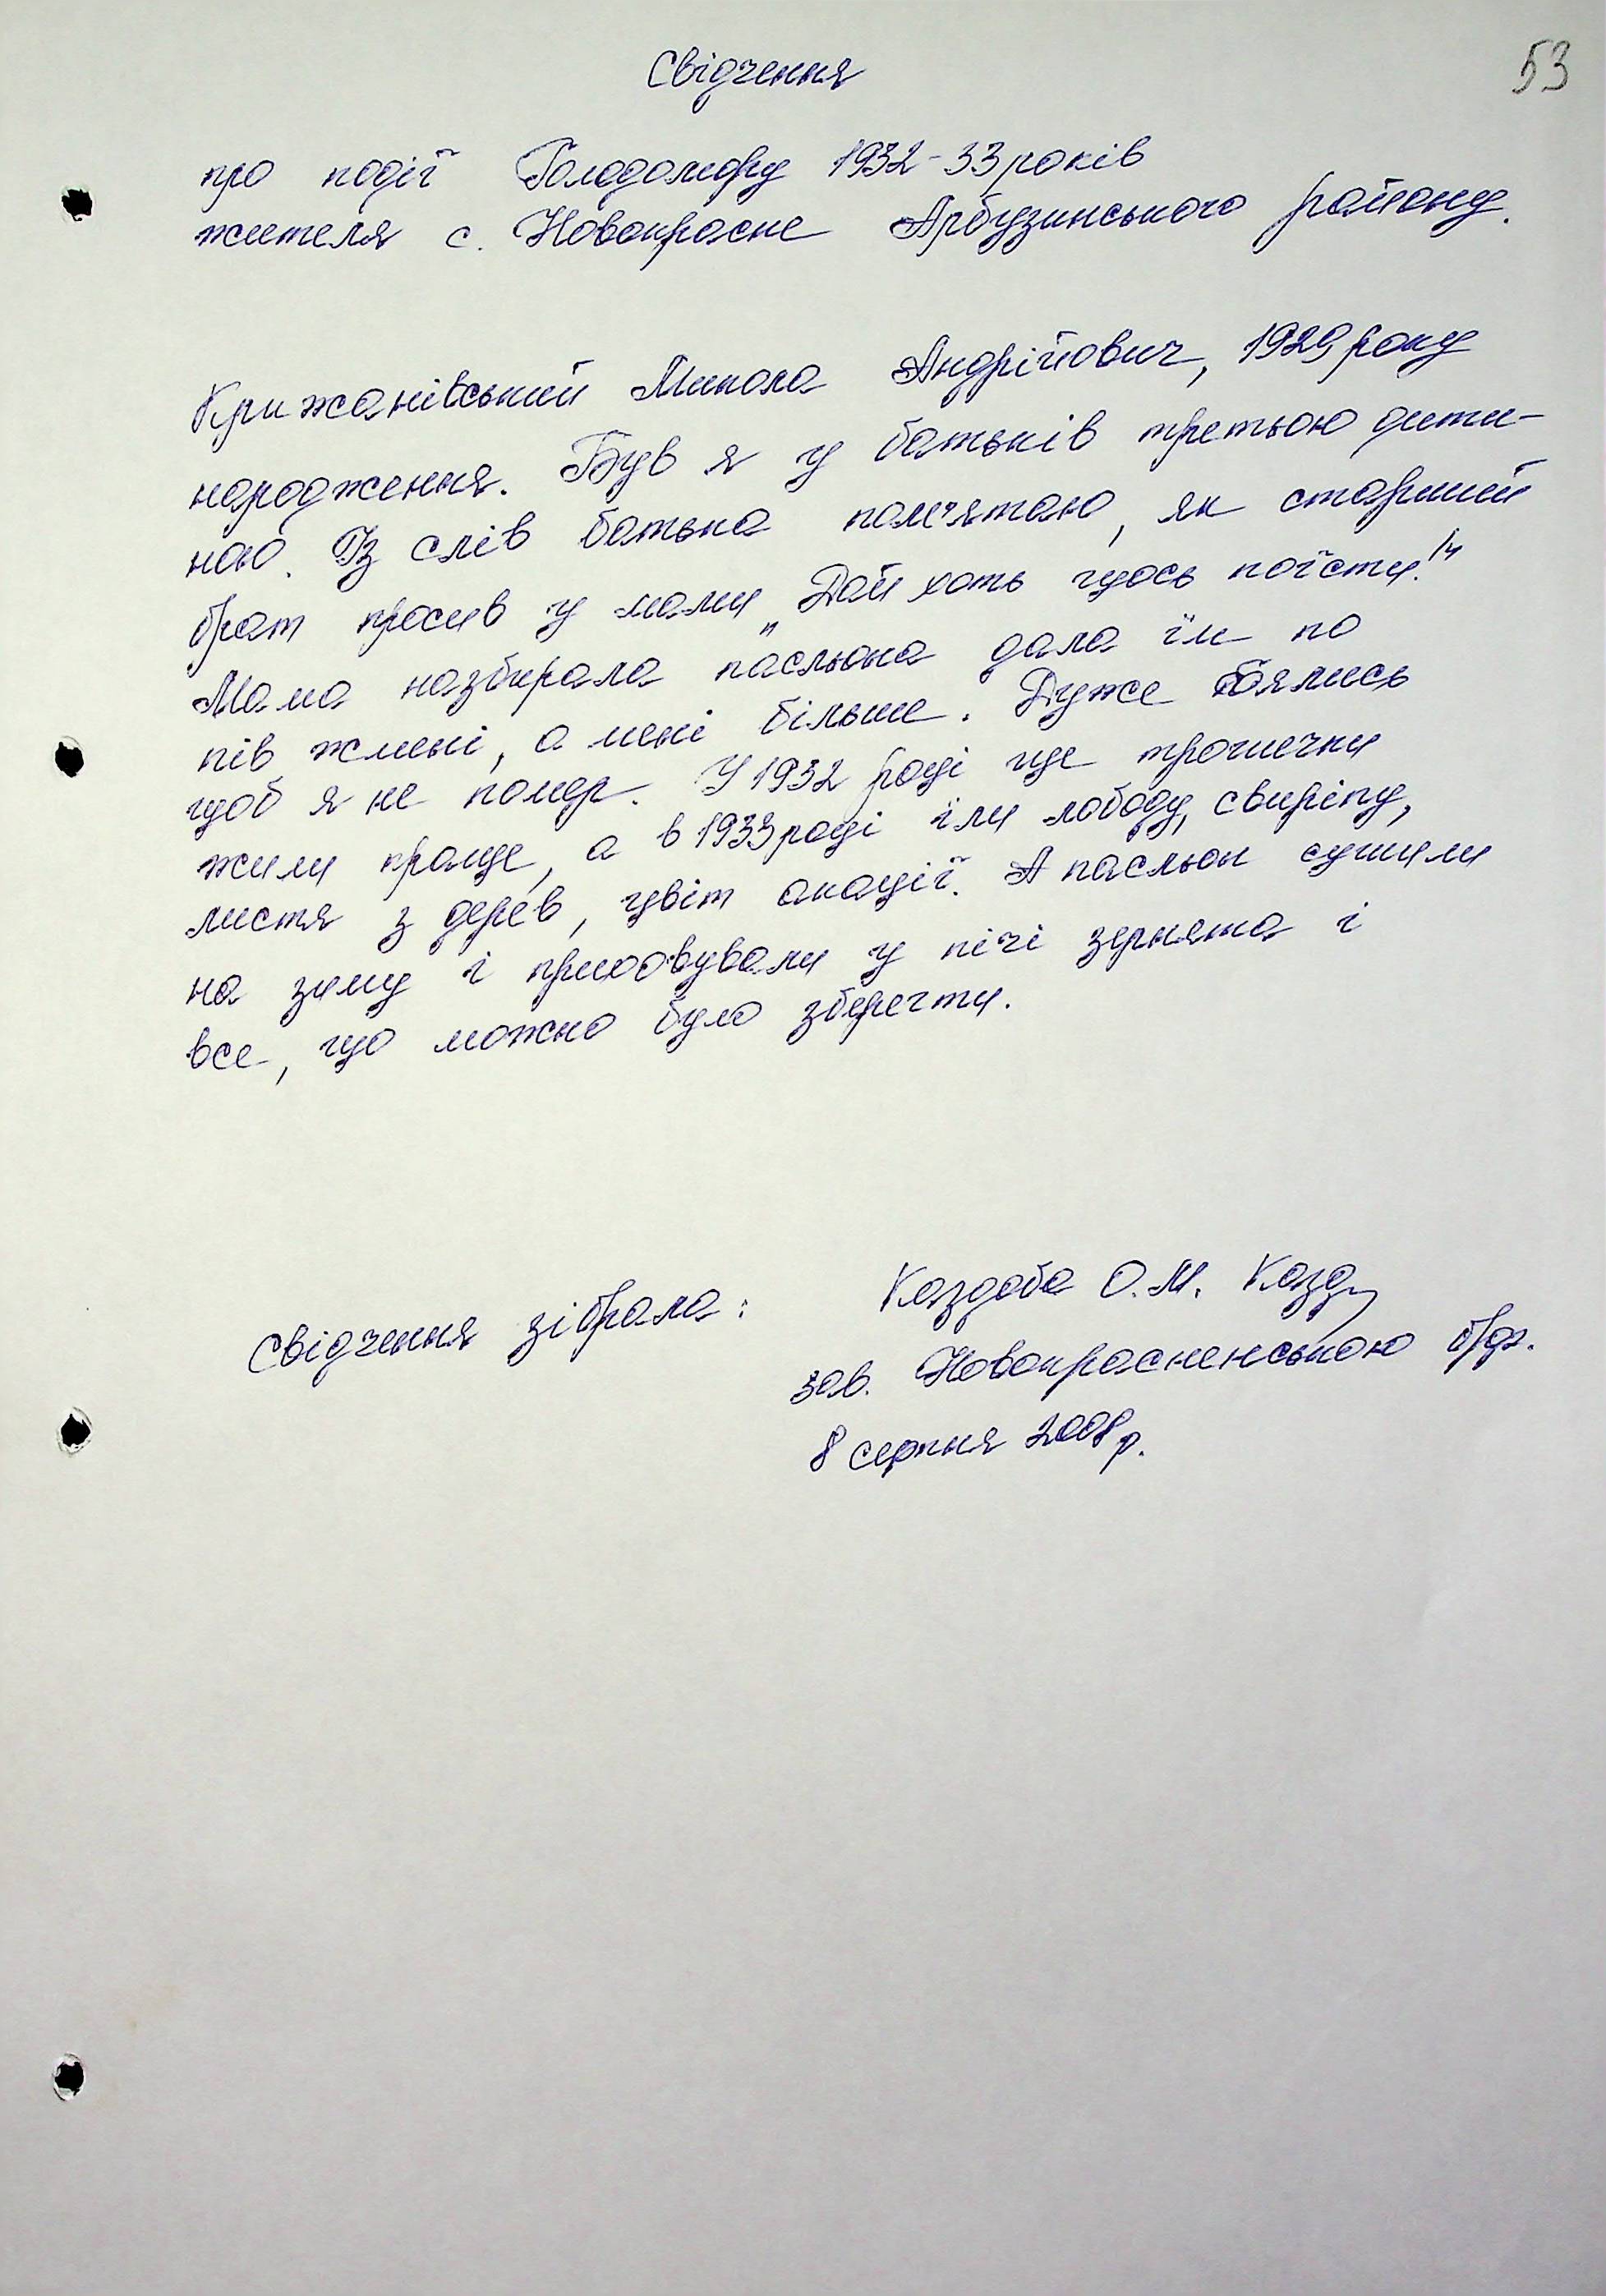 53
Свідчення
про події Голодомору 1932-33 років
жителя с. Новокрасне Арбузинського району.
Крижанівський Микола Андрійович, 1929 року
народження. Був я у батьків третьою дити-
ною. Із слів батька пам'ятаю, як старший
брат просив у мами „Дай хоть щось поїсти!"
Мама назбирала пасльона дала їм по
пів жмені, а мені більше. Дуже боялись
щоб я не помер. У 1932 році ще трошечки
жили краще, а в 1933 році їли лободу, свиріпу,
листя з дерев, цвіт акації. А пасльон сушили
на зиму і приховували у печі зернята і
все, що можно було зберегти.
Свідчення зібрала: Каздоба О.М. Казд
зав. Новокрасненською б/ф.
8 серпня 2008 р.